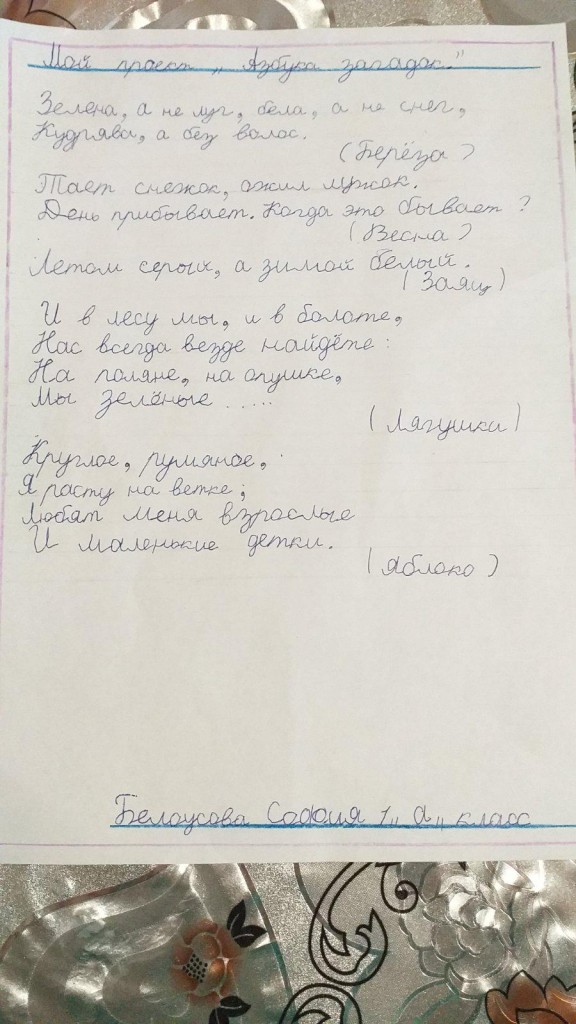 Мой проект „Азбука загадок."
Зелена, а не луг, бела, а не снег,
Кудрява, а без волос.
(Берёза)
Тает снежок, ожил лужок.
День прибывает. Когда это бывает?
(Весна)
Летом серый, а зимой белый.
(Заяц)
И в лесу мы, и в болоте,
Нас всегда везде найдёте:
На поляне, на опушке,
Мы зелёные .....
(Лягушки)
Круглое, румяное,
Я расту на ветке;
Любят меня взрослые
И маленькие детки.
(Яблоко)
Белоусова София 1 „а„ класс